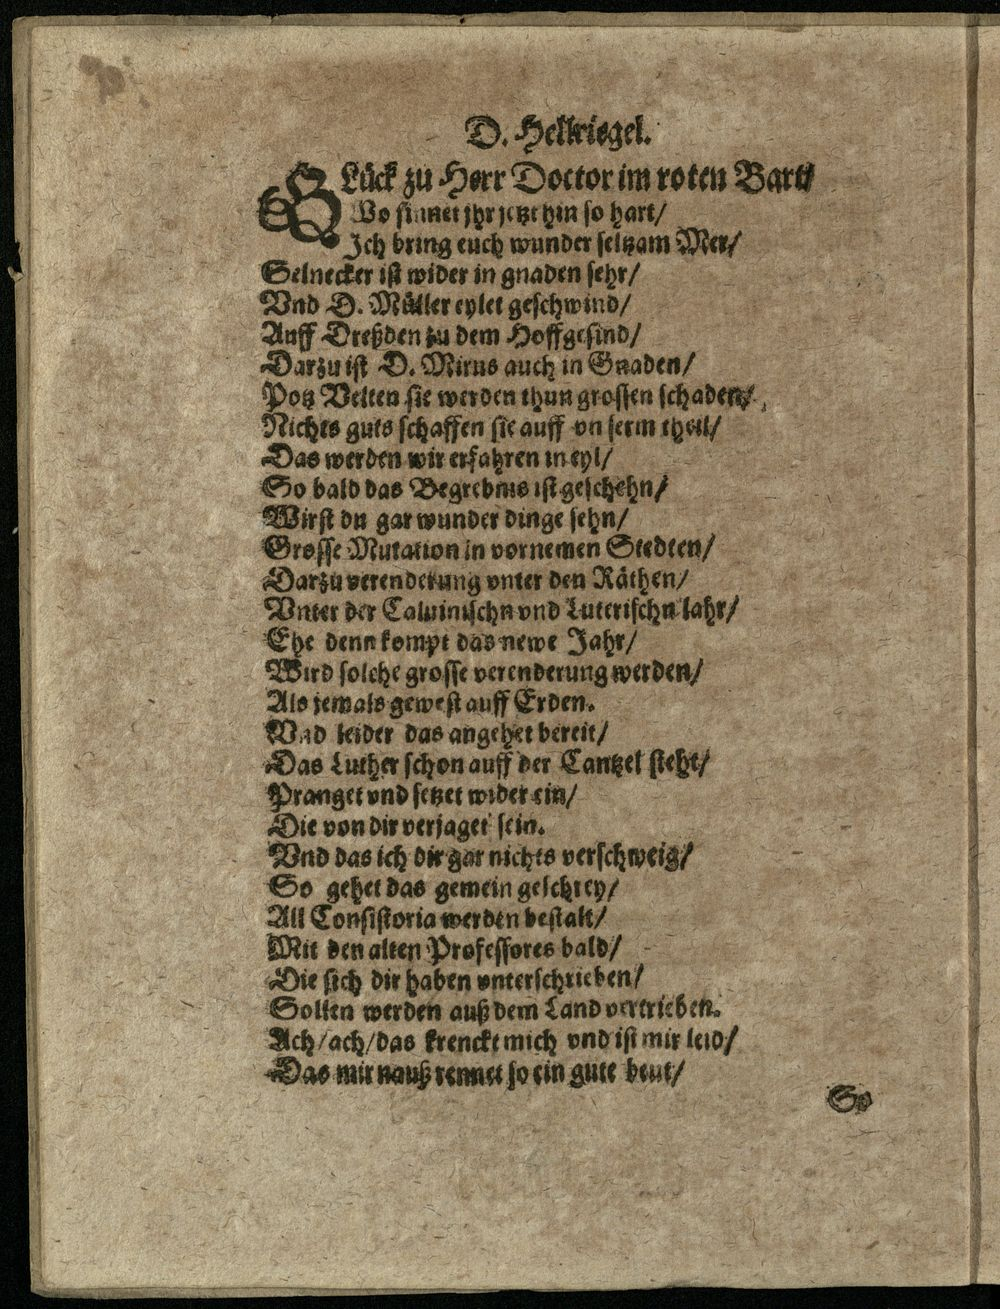 D. Hellriegel.
GLück zu Herr Doctor im roten Bart/
Wo sinnet jhr jetzt hin so hart/
Ich bring euch wunder seltzam Mer/
Selnecker ist wider in gnaden sehr/
Vnd D. Müller eylet geschwind/
Auff Dreßden zu dem Hoffgesind/
Darzu ist D. Mirus auch in Gnaden/
Potz Velten sie werden thun grossen schaden/
Nichts guts schaffen sie auff vnserm theil/
Das werden wir erfahren in eyl/
So bald das Begrebnis ist geschehn/
Wirst du gar wunder dinge sehn/
Grosse Mutation in vornemen Stedten/
Darzu verenderung vnter den Räthen/
Vnter der Caluinischn vnd Luterischn lahr/
Ehe denn kompt das newe Jahr/
Wird solche grosse verenderung werden/
Als jemals gewest auff Erden.
Vnd leider das angehet bereit/
Das Luther schon auff der Cantzel steht/
Pranget vnd setzet wider ein/
Die von dir verjaget sein.
Vnd das ich dir gar nichts verschweig/
So gehet das gemein geschrey/
All Consistoria werden bestalt/
Mit den alten Professores bald/
Die sich dir haben vnterschrieben/
Sollen werden auß dem Land vertrieben.
Ach/ach/das krenckt mich vnd ist mir leid/
Das mir nauß rennet so ein gute beut/
So